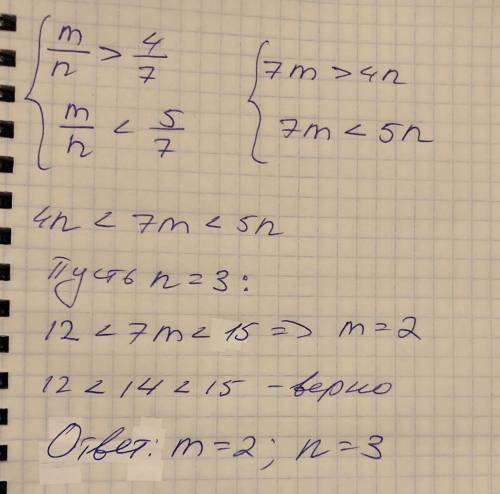 m/n > 4/7     7m > 4n
m/n < 5/7     7m < 5n
4n < 7m < 5n
Пусть n = 3:
12 < 7m < 15 => m = 2
12 < 14 < 15 - верно
Ответ: m = 2; n = 3